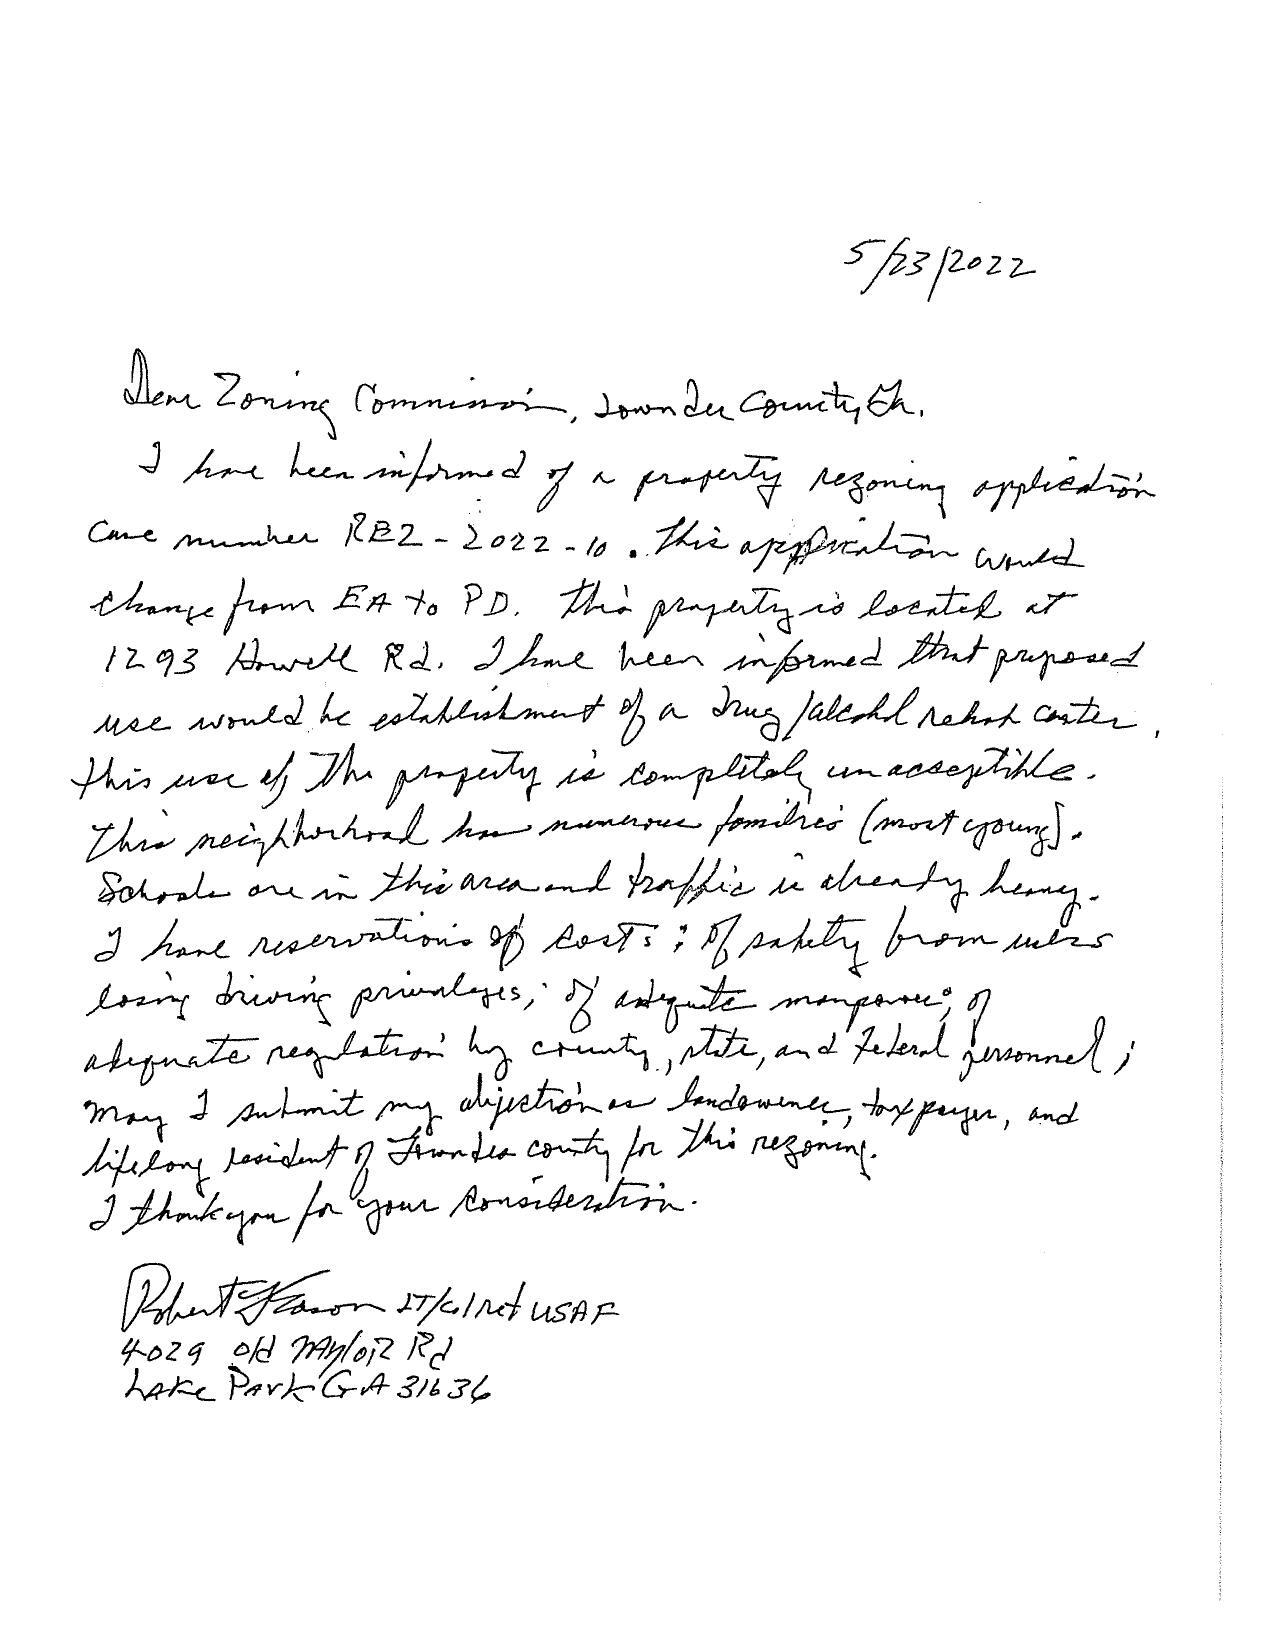 5/23/2022
Dear Zoning Commission, Lowndes County, Ga.
I have been informed of a property rezoning application
Case number REZ-2022-10. This application would
change from EA to PD. This property is located at
1293 Howell Rd. I have been informed that proposed
use would be establishment of a drug/alcohol rehab center.
This use of the property is completely unacceptible.
This neighborhood has numerous families (most young).
Schools are in this area and traffic is already heavy.
I have reservations of costs; of safety from users
losing driving privaleges; of adequate manpower; of
adequate regulation by county, state, and Federal personnel;
May I submit my objection as landowner, taxpayer, and
lifelong resident of Lowndes county for this rezoning.
I thank you for your consideration.
Robert LT/Col ret USAF
4029 Old Naylor Rd
Lake Park GA 31636